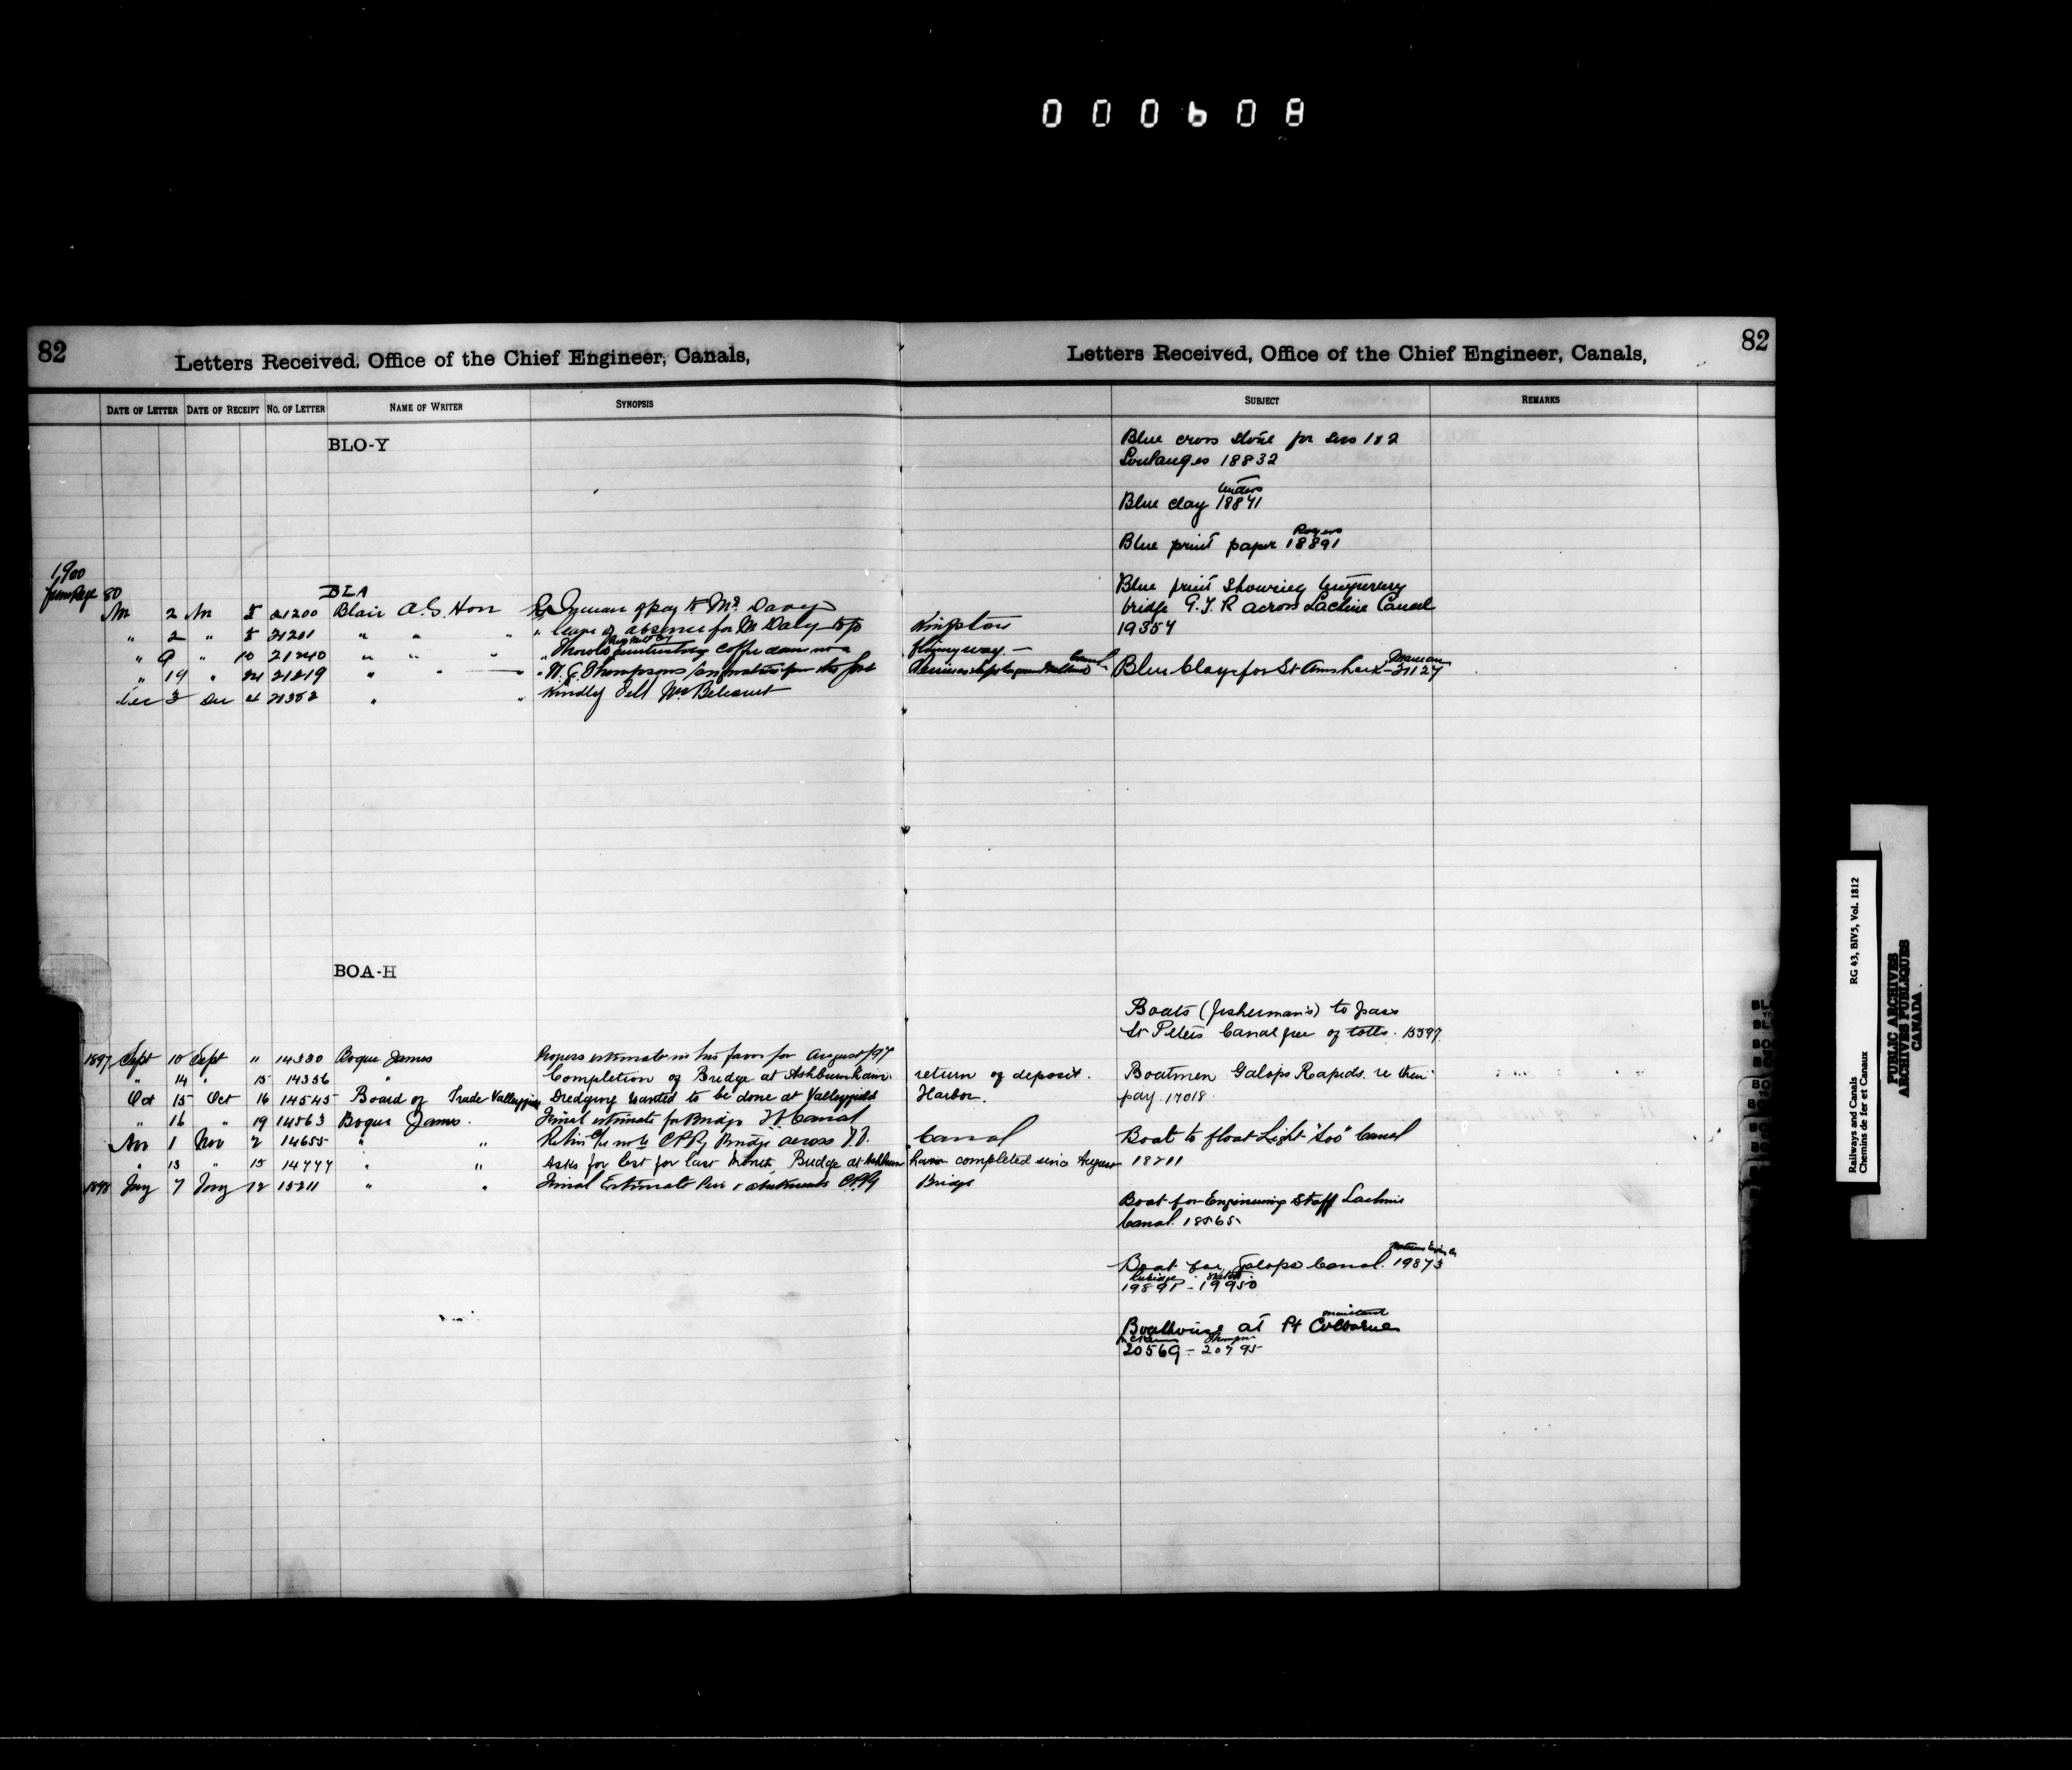 000608
82
Letters Received, Office of the Chief Engineer, Canals,
Letters Received, Office of the Chief Engineer, Canals,
82
DATE OF LETTER DATE OF RECEIPT NO. OF LETTER NAME OF WRITER SYNOPSIS SUBJECT REMARKS
BLO-Y
Blue cross stone for Secs 1 & 2
Soulanges 18832
Blue clay 18841
Rogers
Blue print paper 18891
Blue print showing temporary
bridge G.T.R across Lachine Canal
19354
1900
from Page 80
BLA
2 5 21200 Blair A.G. Hon of pay to Mr. Davy
" 2 " 5 21201 " " " " leave of absence for Mr Daly to go Kingston
" 9 " 10 21240 " " " " Thorold coffer dam not a
" 19 " 21 21219 " " " W. G. Thompsons Canal
Blue Clay for St Anns Lock - 21127
Dec 3 Dec 4 21352 " " Kindly tell Mr. Belcourt
BOA-H
Boats (fisherman's) to pass
St Peters Canal free of tolls. 13399
1897 Sept 10 Sept " 14330 Bogue James Progress estimate in his favor for August/97
" 14 " 15 14356 " Completion of Bridge at Ashburnham. return of deposit.
Boatmen Galops Rapids. re their
pay 17018
Oct 15 Oct 16 14545 Board of Trade Valleyfield Dredging wanted to be done at Valleyfield Harbor.
" 16 " 19 14563 Bogue James. Final estimate for Bridge Canal
Nov 1 Nov 2 14655 " " CPRy Bridge across Canal
Boat to float Light "Soo" Canal
18211
" 13 " 15 14777 " " Asks for last month, Bridge at Ashburnham completed since August
1898 Jany 7 Jany 12 15211 " " Final Estimate Pier & abutments CPRy Bridge
Boat for Engineering Staff Lachine
Canal. 18565
Boat for Galops Canal. 19873
19891 - 19950
Boathouse at Pt Colborne
20569 - 20795
Railways and Canals RG 43, BIV5, Vol. 1812
Chemins de fer et Canaux
PUBLIC ARCHIVES
ARCHIVES PUBLIQUES
CANADA